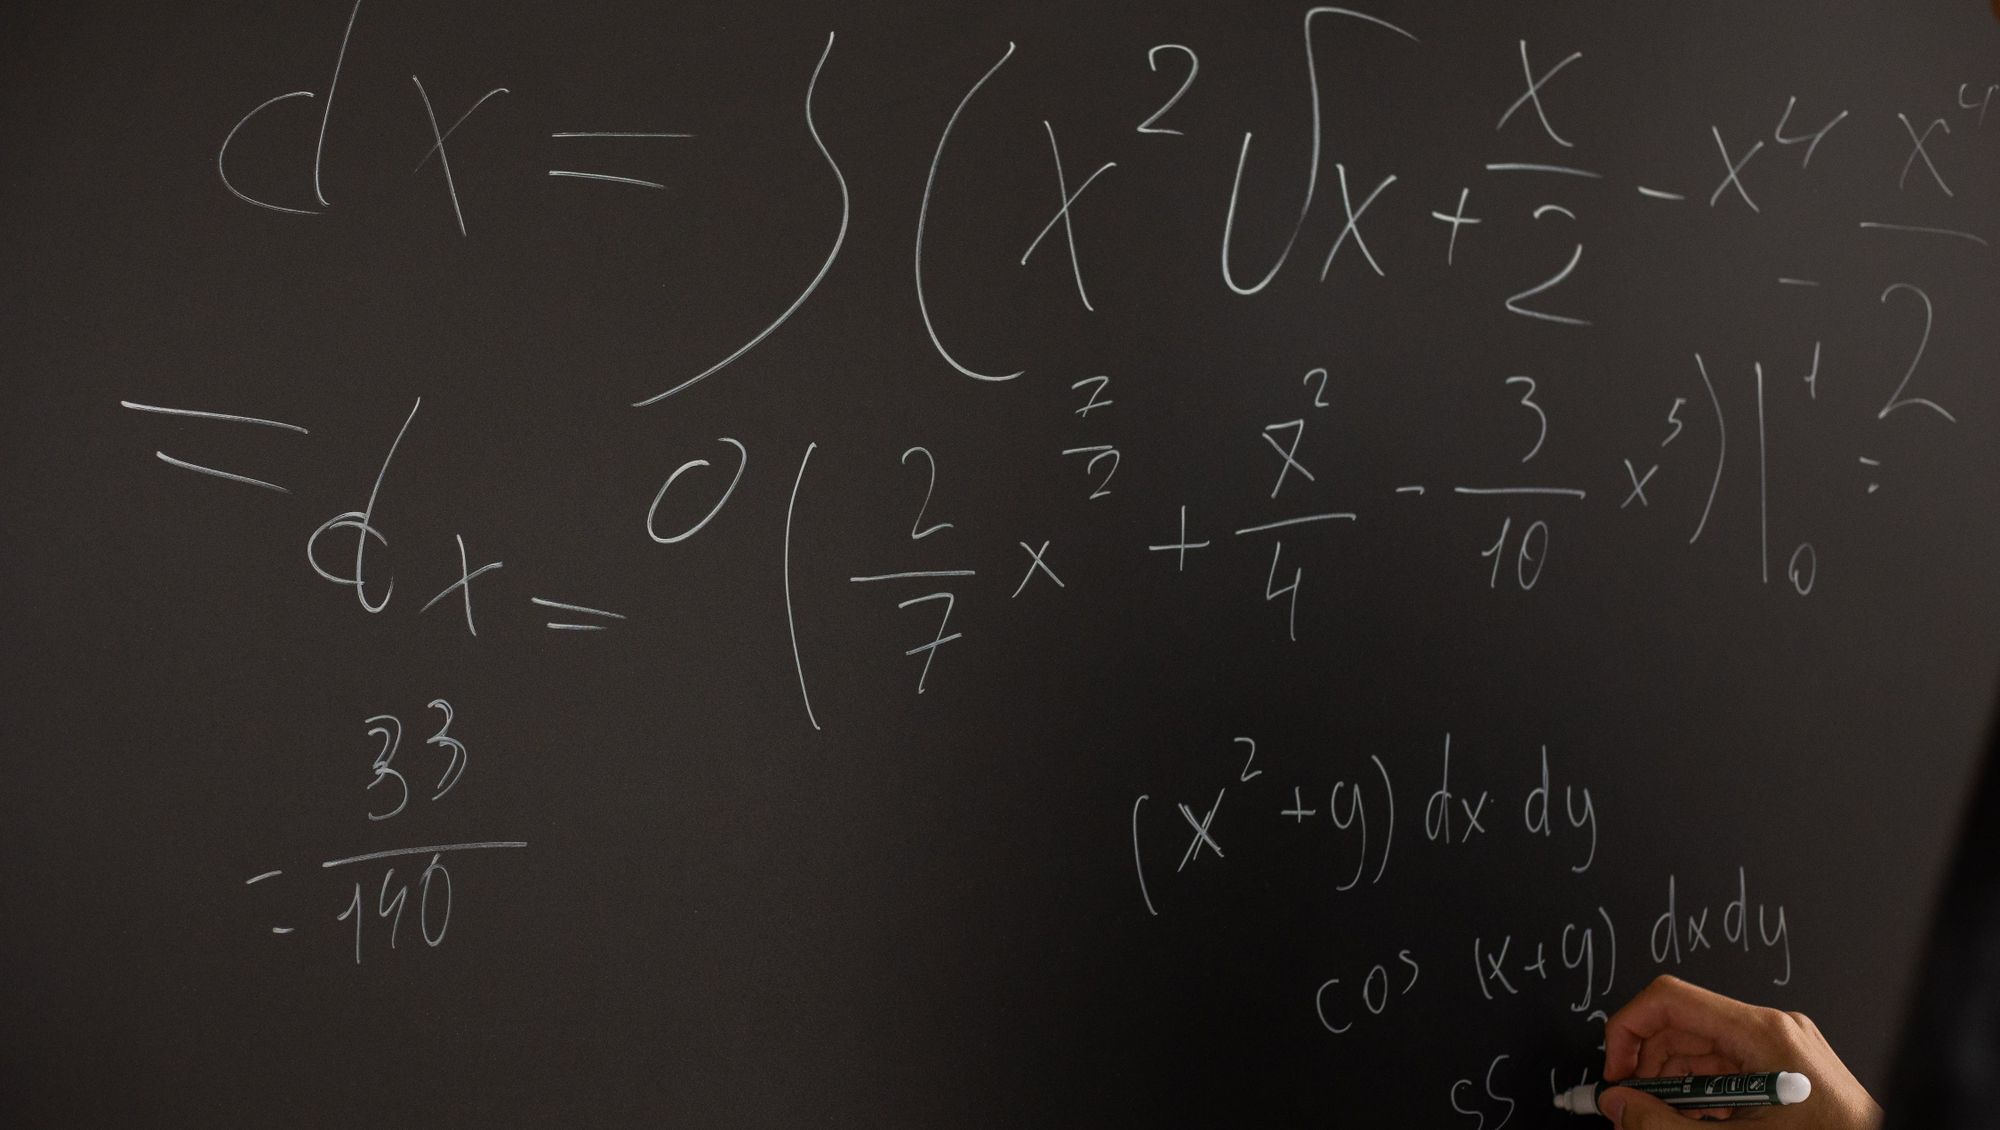 dx = ∫ (x² √x + x/2 - x⁴ - x⁴/2
= dx = 0 (2/7 x^7/2 + x²/4 - 3/10 x⁵)|₀¹ =
= 33/140
(x² + y) dx dy
cos (x+y) dx dy